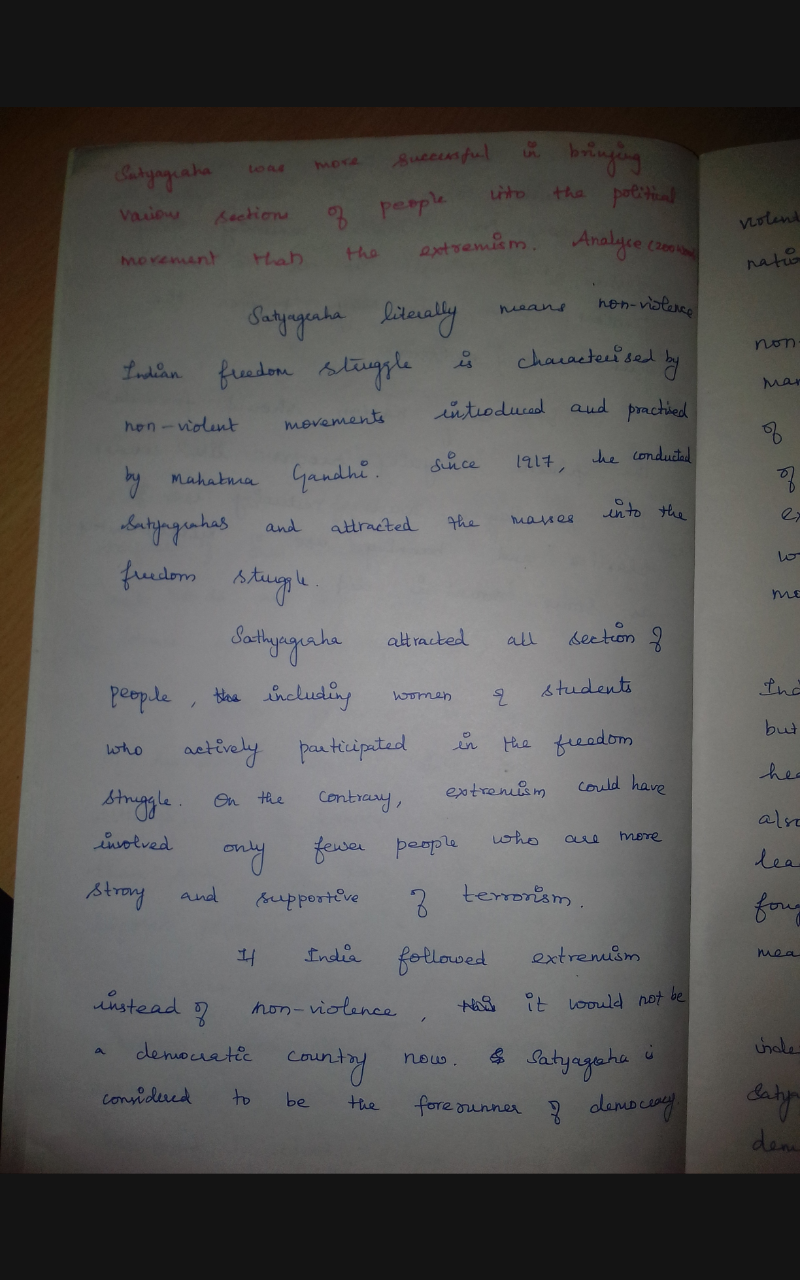 Satyagraha was more successful in bringing
various sections of people into the political
movement than the extremism. Analyse (200
Satyagraha literally means non-violence
Indian freedom struggle is characterised by
non-violent movements introduced and practised
by Mahatma Gandhi. Since 1917, he conducted
Satyagrahas and attracted the masses into the
freedom struggle.
Sathyagraha attracted all section of
people, the including women & students
who actively participated in the freedom
struggle. On the contrary, extremism could have
involved only fewer people who are more
strong and supportive of terrorism.
If India followed extremism
instead of non-violence, this it would not be
a democratic country now. Satyagraha is
considered to be the forerunner of democracy
violent
natio
non-
mar
of
of
ex
wo
mo
Ind
but
hea
also
lea
foug
mea
inde
Satya
dem